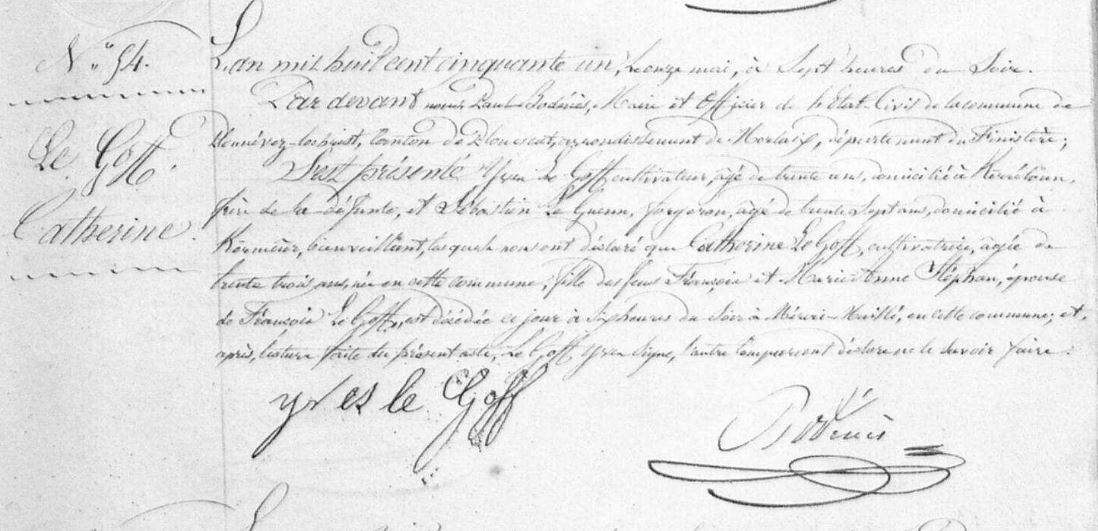 N° 54.
Le Goff
Catherine.
L'an mil huit cent cinquante un, le onze mai, à Sept heures du Soir.
Par devant nous, Paul Bodénès, Maire et Officier de l'Etat-Civil de la commune de
Plounévez-lochrist, Canton de Plouescat, arrondissement de Morlaix, département du Finistère;
S'est présenté Yves Le Goff, cultivateur, agé de trente ans, domicilié à
frère de la défunte, et Sébastien Le Guenn, forgeron, agé de trente sept ans, domicilié à
bienveillant, lesquels nous ont déclaré que Catherine Le Goff, cultivatrice, agée de
trente trois ans, née en cette commune, fille des feus François et Marie-Anne Stéphan, épouse
de François Le Goff, est décédée ce jour à heures du Soir à en cette commune; et,
après lecture faite du présent acte, Le Goff Yves Signe, l'autre Comparant déclare ne le savoir faire.
yves le Goff
Bodénès